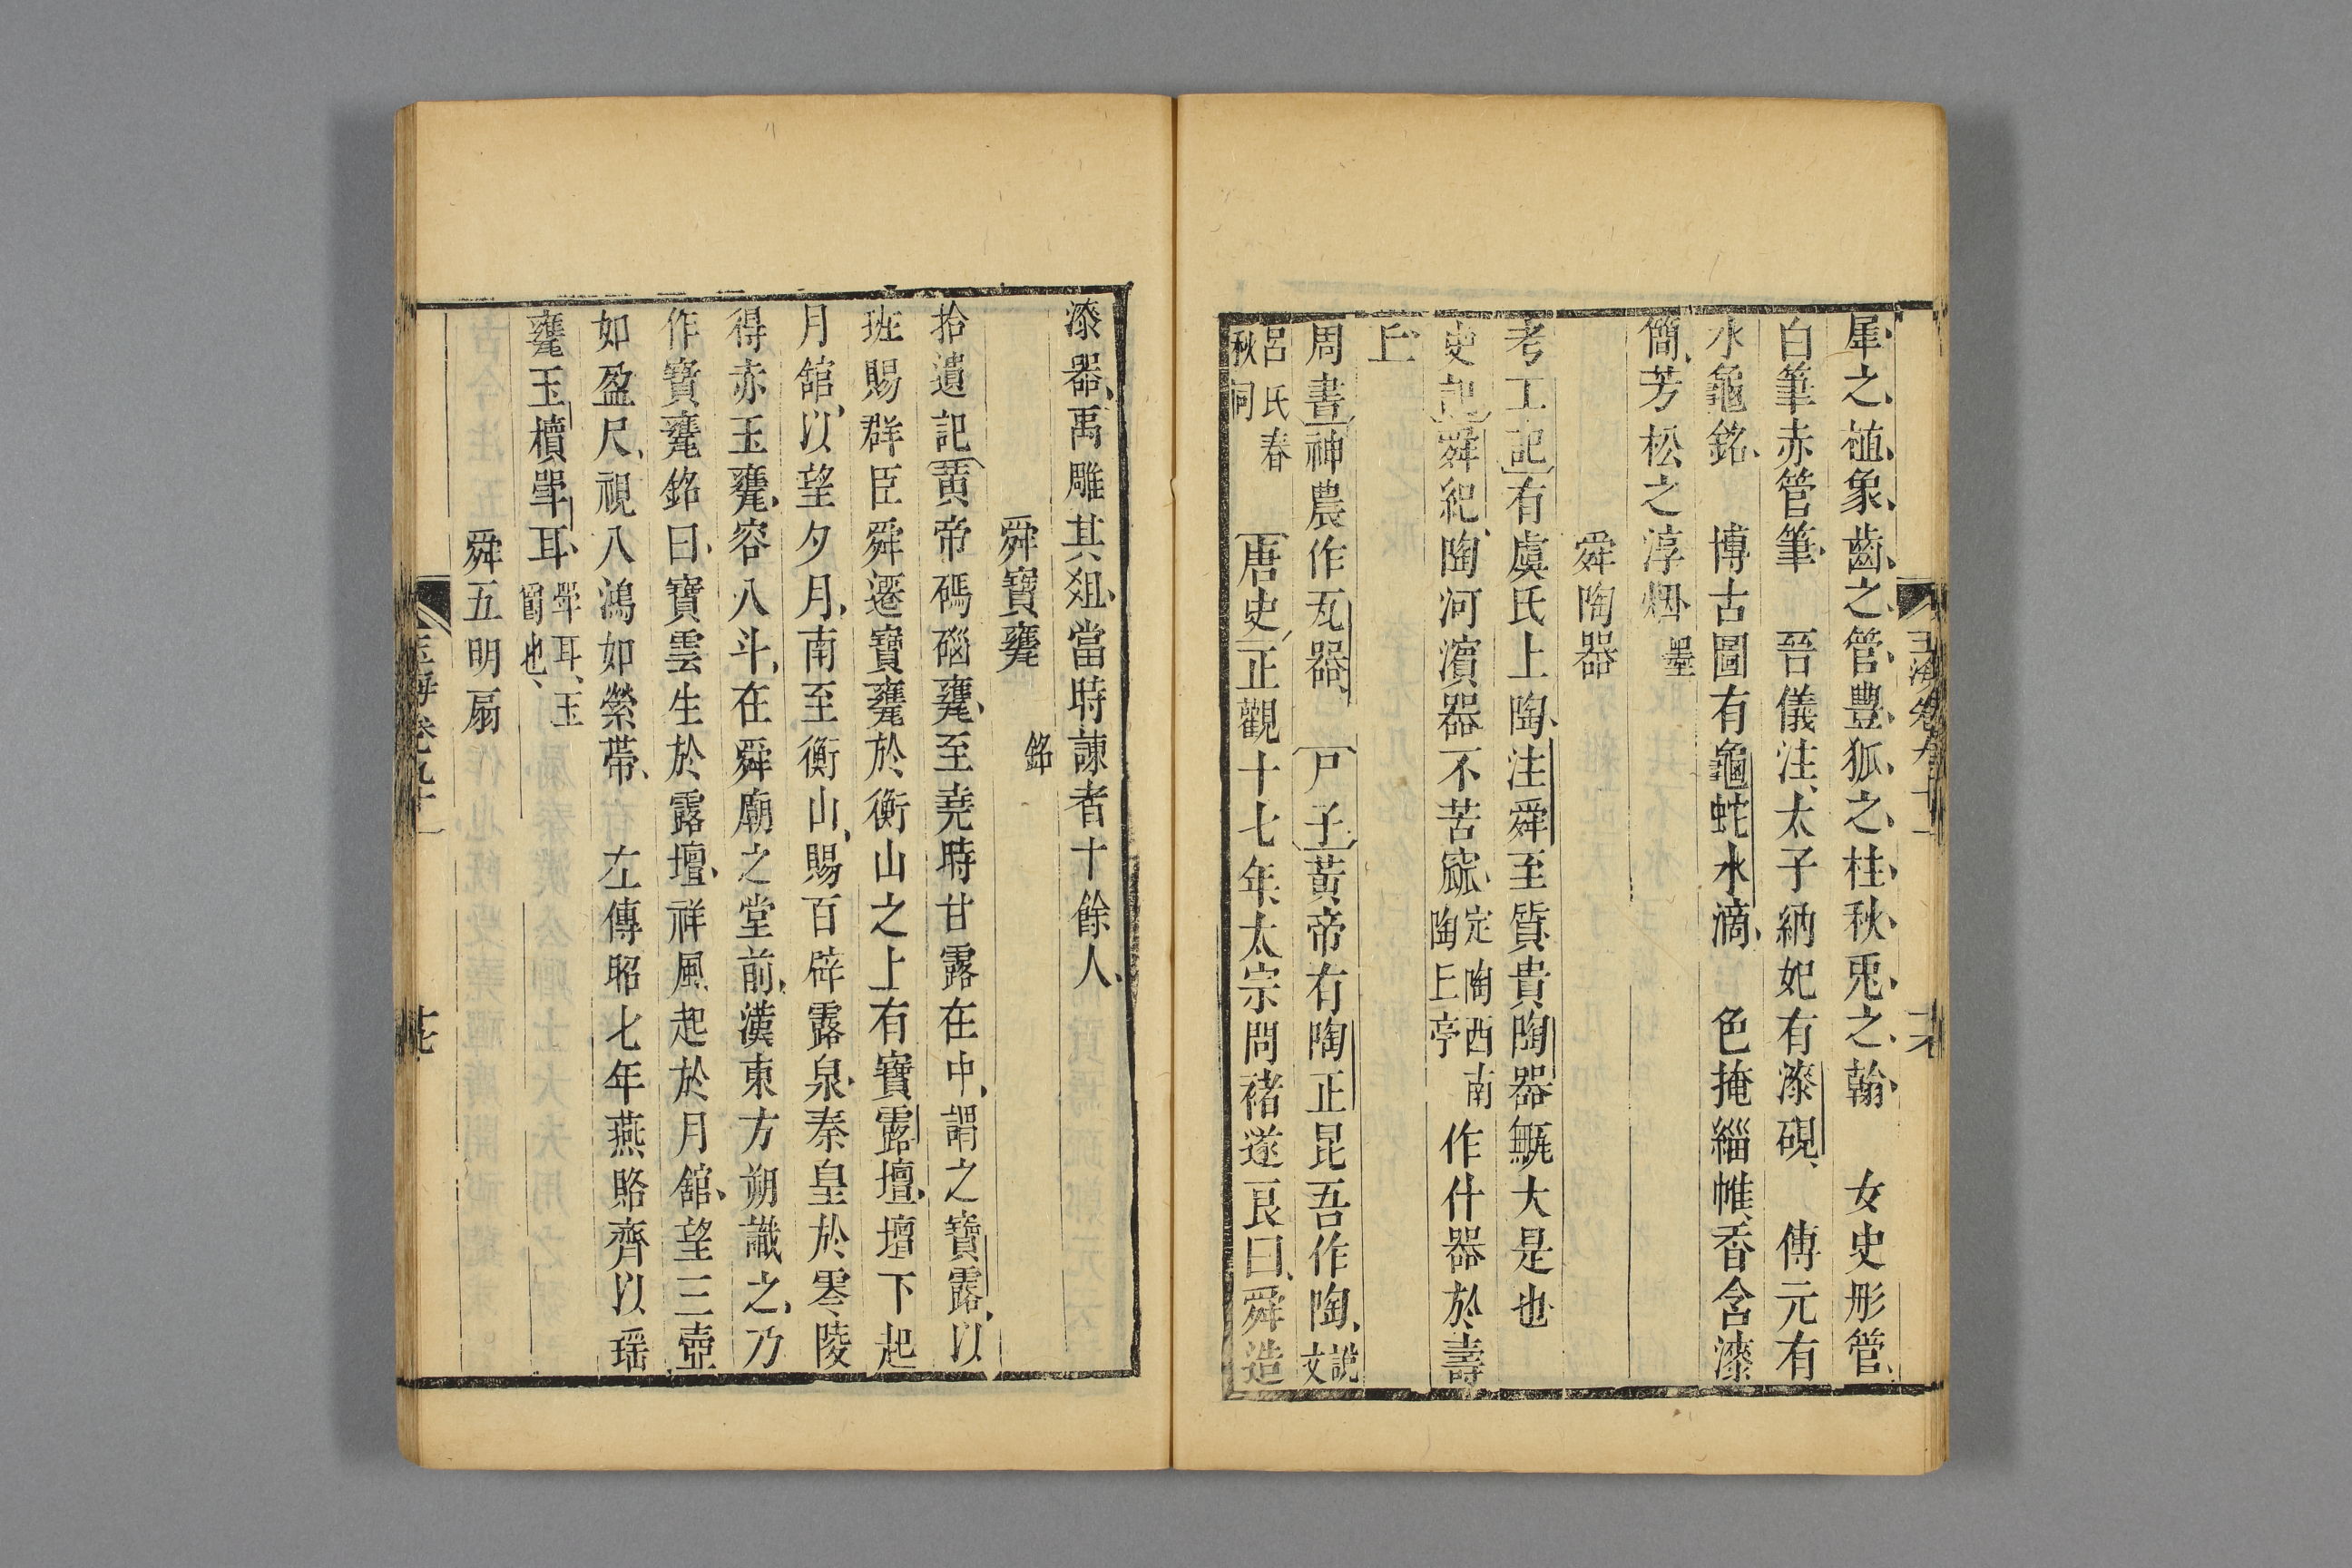 犀之植象齒之管豐狐之柱秋兎之翰　女史彤管
白筆赤管筆　晉儀注太子納妃有漆硯　傅元有
水龜銘　博古圖有龜蛇水滴　色掩緇帷香含漆
簡芳松之淳烟墨
舜陶器
考工記有虞氏上陶注舜至質貴陶器甒大是也
史記舜紀陶河濵器不苦窳定陶西南陶丘亭作什器於壽
丘
周書神農作瓦器　尸子黃帝有陶正昆吾作陶說文
呂氏春秋同　唐史正觀十七年太宗問褚遂良曰舜造
漆器禹雕其俎當時諫者十餘人
舜寶甕　銘
拾遺記黃帝碼碯甕至堯時甘露在中謂之寶露以
班賜群臣舜遷寶甕於衡山之上有寶露壇壇下起
月舘以望夕月南至衡山賜百辟露泉秦皇於零陵
得赤玉甕容八斗在舜廟之堂前漢東方朔識之乃
作寶甕銘曰寶雲生於露壇祥風起於月舘望三壺
如盈尺視八鴻如縈帶　左傳昭七年燕賂齊以瑶
甕玉櫝斝耳斝耳玉爵也
舜五明扇
玉海卷九十一